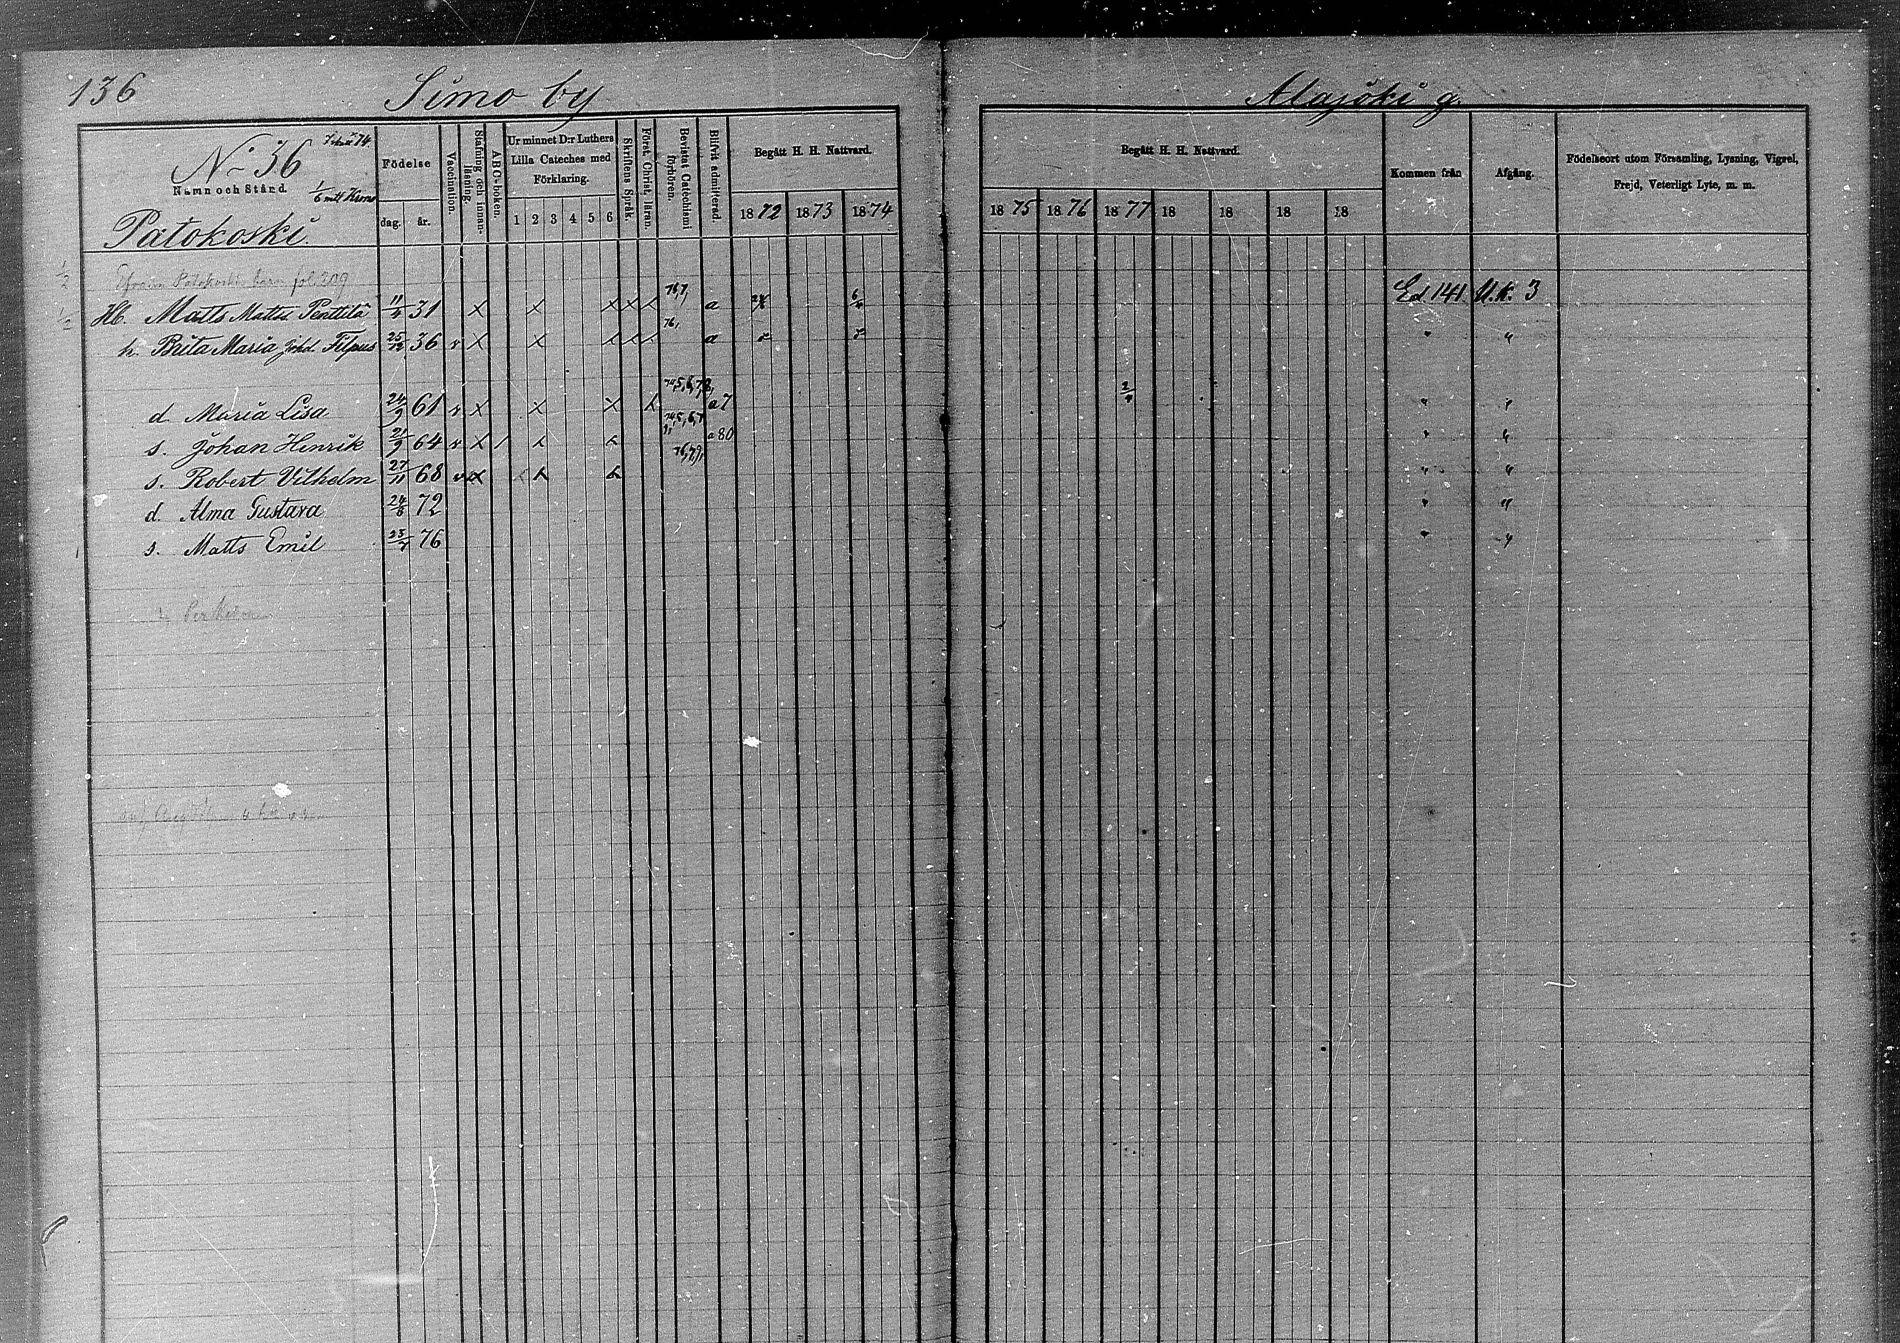 136 Simo by Alajoki g.
No 36
1/6 mtl Krono
Namn och Stånd.
Patokoski.
Födelse
dag. år.
Vaccination.
Stafning och innan-läsning.
ABC-boken.
Ur minnet D:r Luthers
Lilla Cateches med
Förklaring.
1 2 3 4 5 6
Skriftens Språk.
Förest. Christ. läran.
Bevista Catechismi förhören.
Blifvit admitterad.
Begått H. H. Nattvard.
1872 1873 1874
Begått H. H. Nattvard.
1875 1876 1877 18 18 18 18
Kommen från
Afgång.
Födelseort utom Församling, Lysning, Vigsel,
Frejd, Veterligt Lyte, m. m.
1/2 Patokoski barn fol 309
1/2 Hb. Matts Matts. Penttilä 11/4 31 x x x x x 76,7, a 6/4 Ed 141 U.k. 3
h. Brita Maria Johd. Filpus 25/12 36 v x x x x x 76, a " "
d. Maria Lisa 24/9 61 v x x x x 74,5,6,7,8, a 7 2/4 " "
s. Johan Henrik 21/9 64 v x / x x 74,5,6,7 a 80 " "
s. Robert Vilhelm 27/11 68 v x x x x 76,7,9, " "
d. Alma Gustava 24/8 72 " "
s. Matts Emil 25/7 76 " "